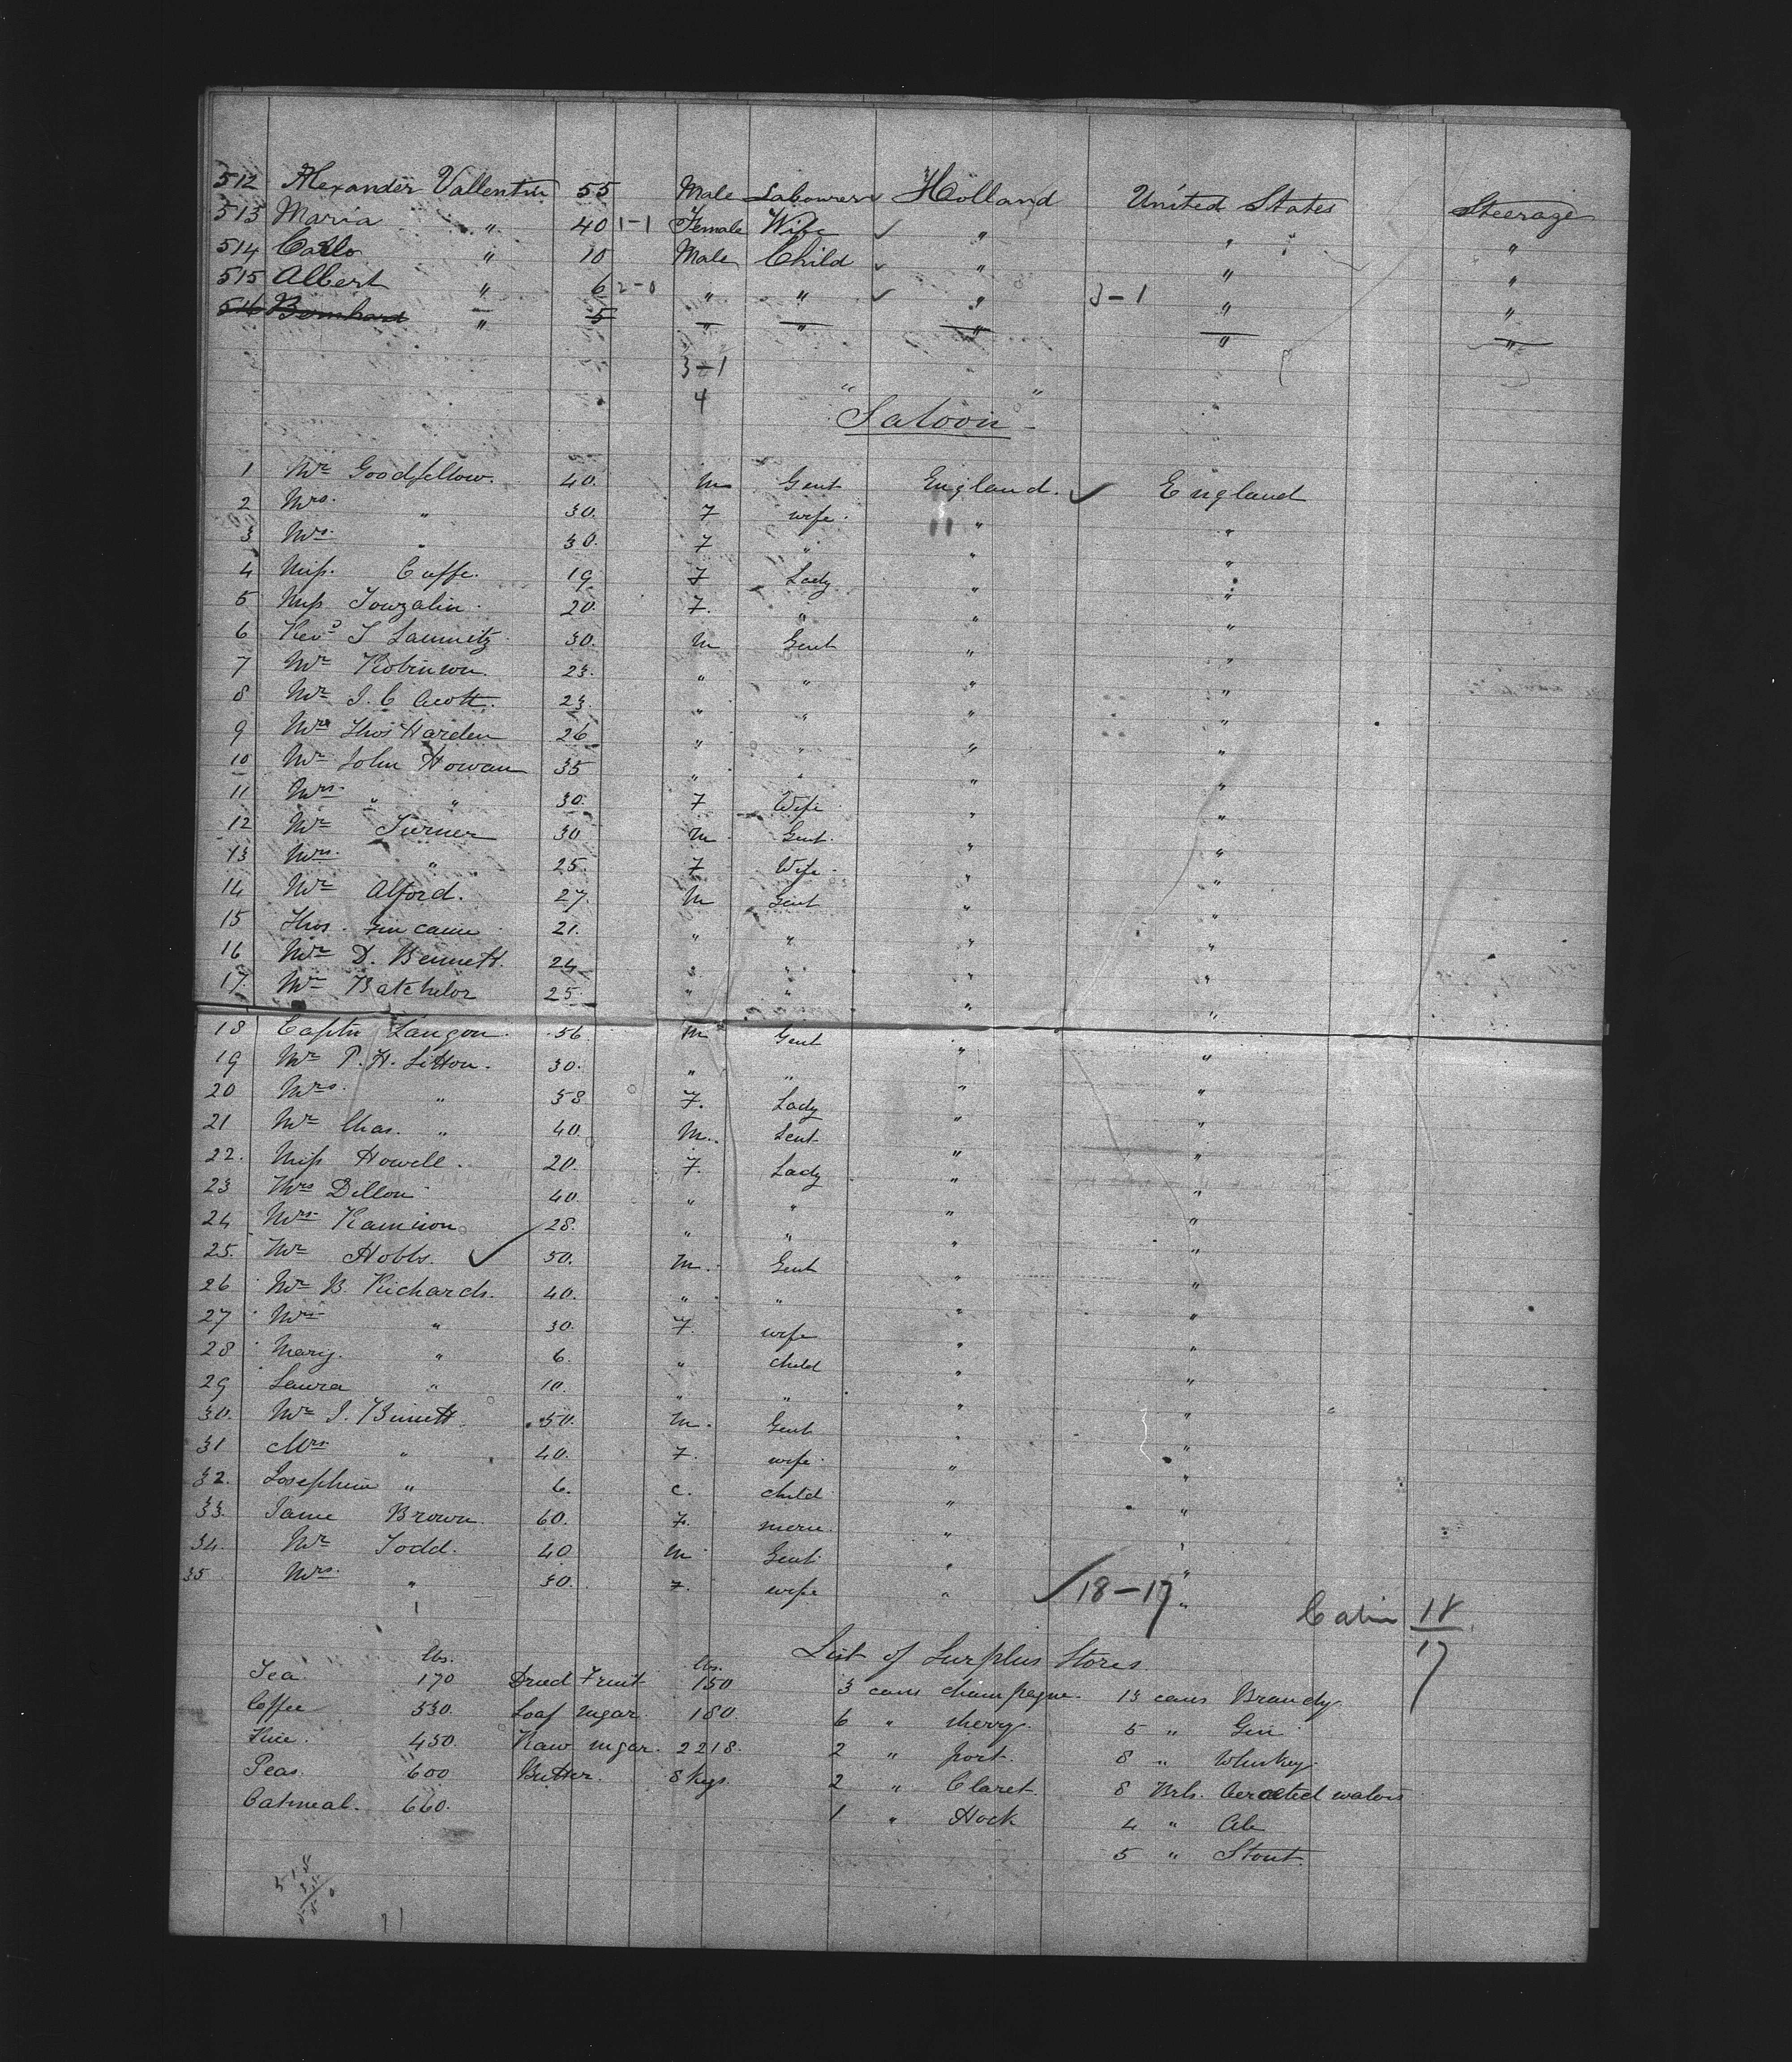 512 Alexander Vallentin 55 Male Labourer Holland United States Steerage
513 Maria " 40 1-1 Female Wife " " "
514 Carlo " 10 Male Child " " "
515 Albert " 6 2-0 " " " 3-1 " "
516 Bernhard " 5 " " " " "
3-1
4
" "
Saloon
1 Mr Goodfellow. 40. M Gent England. England
2 Mrs. " 30. F wife. " "
3 Mrs. " 30. F " " "
4 Miss. Cuffe. 19 F Lady " "
5 Miss Towzalin. 20. F. " " "
6 Revd T Lamnitz 30. M Gent " "
7 Mr Robinson. 23. " " " "
8 Mr J. C Scott. 23. " " " "
9 Mr Thos Harden 26 " " " "
10 Mr John Howan 35 " " " "
11 Mrs. " " 30. F Wife " "
12 Mr Turner 30 M Gent. " "
13 Mrs. " 25. F Wife. " "
14 Mr Alford. 27. M Gent " "
15 Thos. 21. " " " "
16 Mr D. Bennett. 24 " " " "
17. Mr Batchelor 25 " " " "
18 Captn Langon. 56 M Gent " "
19 Mr P. H. Litton. 30. " " " "
20 Mrs. " 58 F. Lady " "
21 Mr Chas. " 40. M. Gent " "
22. Miss Howell. 20. F. Lady " "
23 Mrs Dillon 40. " " " "
24 Mrs 28. " " " "
25. Mr Hobbs. 50. M. Gent " "
26 Mr B. Richards. 40. " " " "
27 Mrs " 30. F. wife " "
28 Mary. " 6. " child " "
29 Laura " 10. " " " "
30. Mr J. 50. M. Gent " "
31 Mrs " 40. F. wife. " "
32. Josephine " 6. c. child " "
33. Jane Brown. 60. F. " "
34. Mr Todd. 40 M Gent. " "
35 Mrs. " 30. F. wife " 18-17 "
Cabin 18
17
List of Surplus Stores.
lbs. lbs.
Tea 170 Dried Fruit 150 3 cases champagne. 13 cases Brandy.
Coffee 530. Loaf sugar. 180. 6 " sherry. 5 " Gin
Rice. 450. Raw sugar. 2218. 2 " port. 8 " Whiskey.
Peas. 600 Butter. 8 kegs. 2 " Claret. 8 Brls. Aerated waters
Oatmeal. 660. 1 " Hock 4 " Ale
5 " Stout.
515
35
550